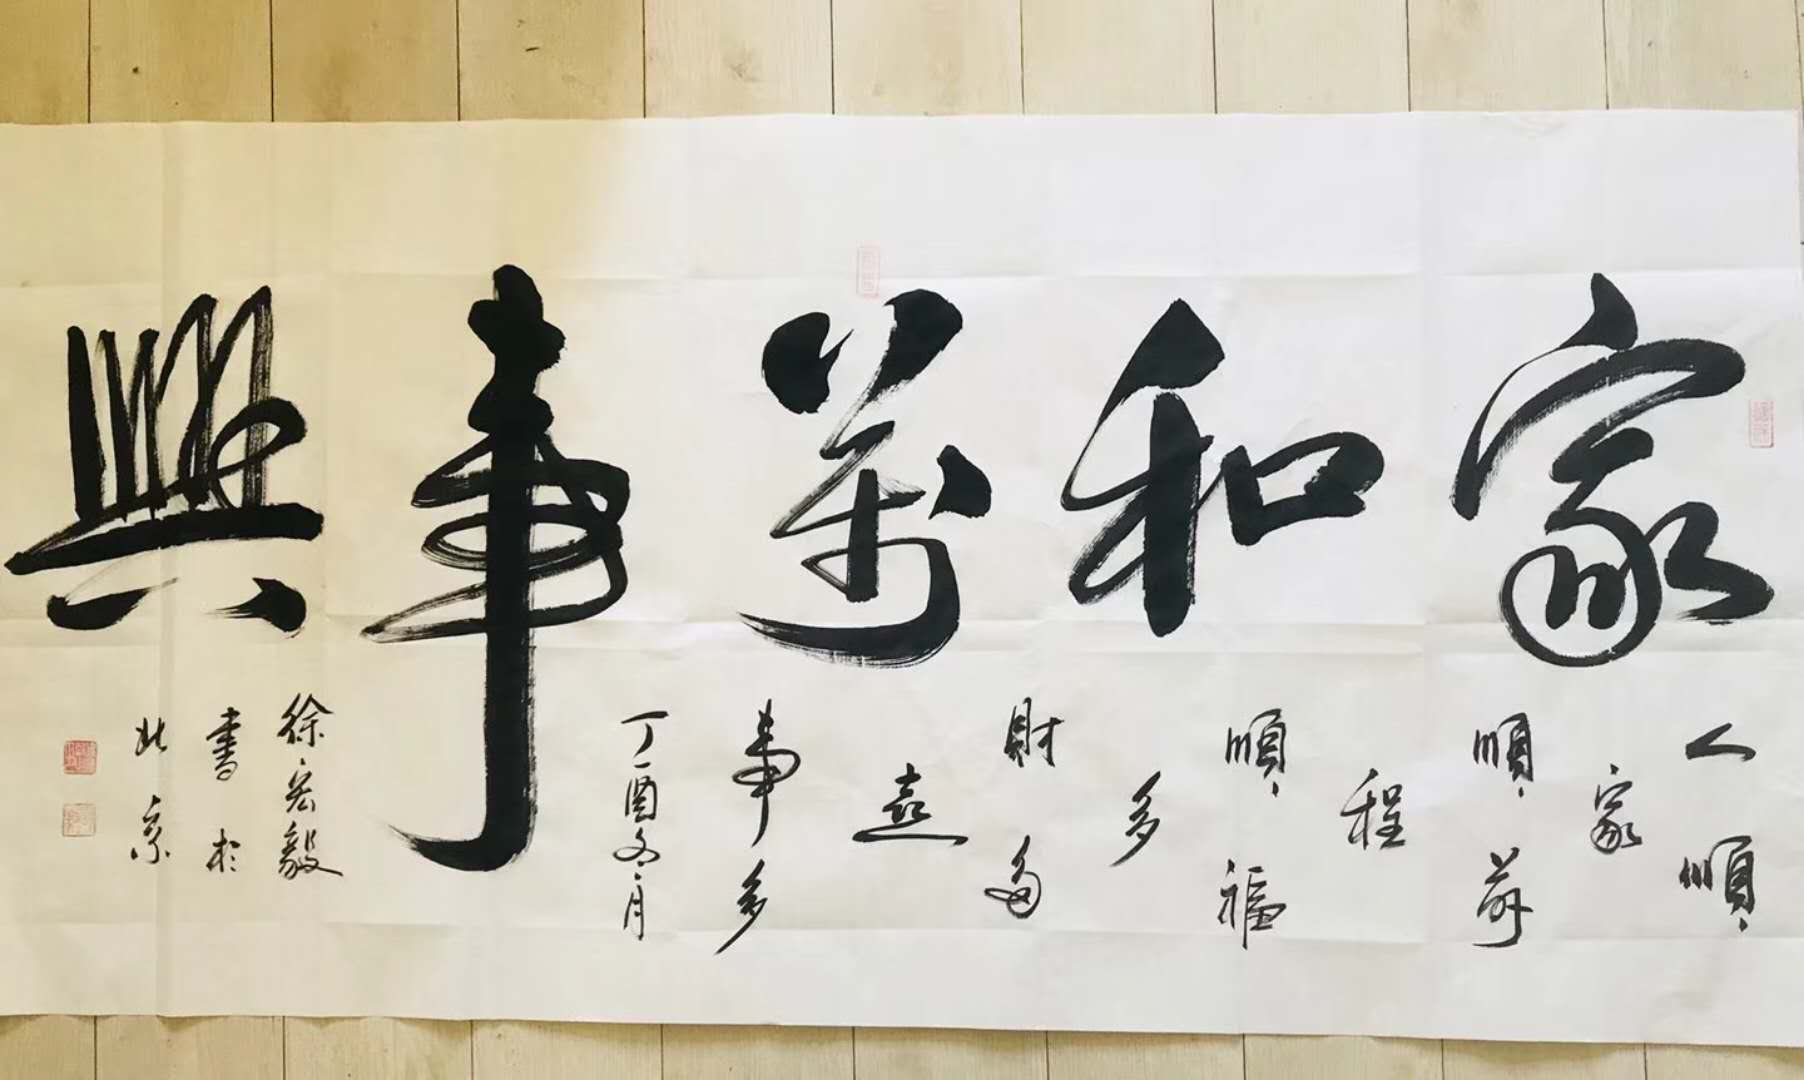 家和萬事興
人順
家
順前
程
順福
多
財多
喜
事多
丁酉冬月
徐宏毅
書於
北京